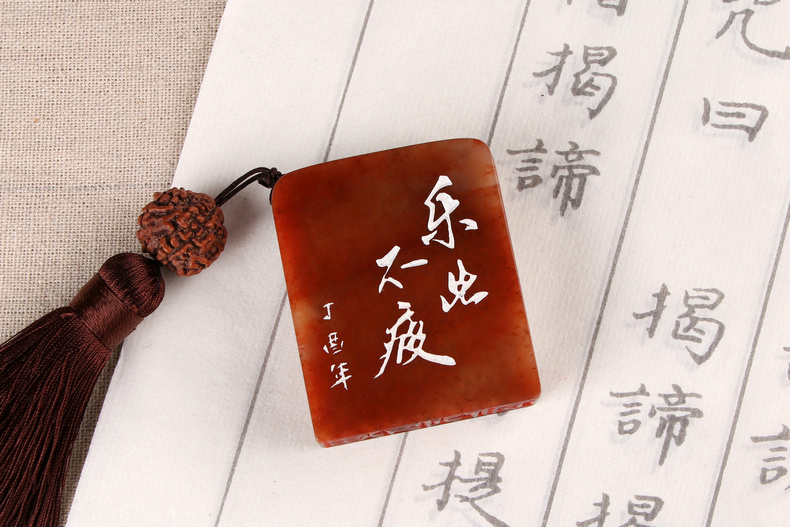 乐此
不疲
丁酉年
咒曰
揭諦揭
諦揭諦
提